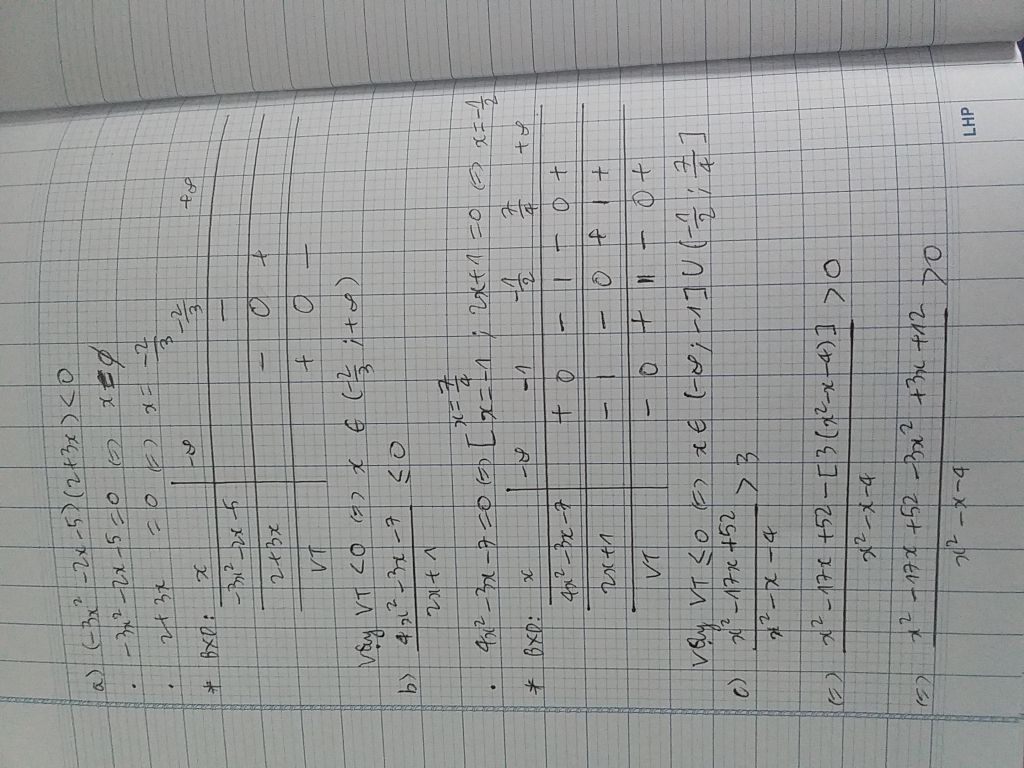 a) (-3x² - 2x - 5)(2 + 3x) < 0
• -3x² - 2x - 5 = 0 (=) x ∈ ∅
• 2 + 3x = 0 (=) x = -2/3
* BXD: x -∞ -2/3 +∞
-3x² - 2x - 5 - -
2 + 3x - 0 +
VT + 0 -
Vậy VT < 0 (=) x ∈ (-2/3 ; +∞)
b) (4x² - 3x - 7)/(2x + 1) ≤ 0
• 4x² - 3x - 7 = 0 (=) [ x = 7/4 x = -1 ; 2x + 1 = 0 (=) x = -1/2
* BXD: x -∞ -1 -1/2 7/4 +∞
4x² - 3x - 7 + 0 - | - 0 +
2x + 1 - | - 0 + | +
VT - 0 + || - 0 +
Vậy VT ≤ 0 (=) x ∈ (-∞ ; -1] ∪ (-1/2 ; 7/4]
c) (x² - 17x + 52)/(x² - x - 4) > 3
(=) (x² - 17x + 52 - [3(x² - x - 4)])/(x² - x - 4) > 0
(=) (x² - 17x + 52 - 3x² + 3x + 12)/(x² - x - 4) > 0
LHP